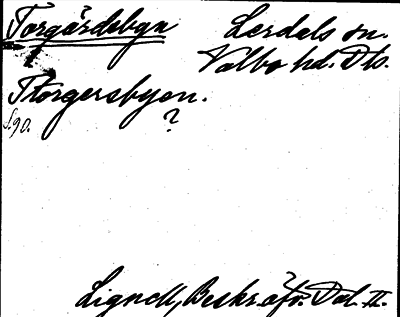 Torgärdsbyn Lerdals sn.
Valbo hd. Dls.
Thorgersbyen.
s.90. ?
Lignell, Beskr. öfv. Dal. II.